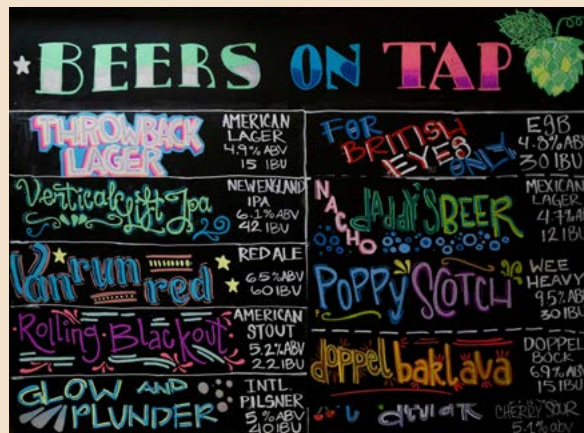 BEERS ON TAP
THROWBACK
LAGER
AMERICAN
LAGER
4.9% ABV
15 IBU
Vertical Lift Ipa
NEW ENGLAND
IPA
6.1% ABV
42 IBU
Van run red
RED ALE
6.5% ABV
60 IBU
Rolling Blackout
AMERICAN
STOUT
5.2% ABV
22 IBU
GLOW AND
PLUNDER
INTL.
PILSNER
5% ABV
40 IBU
FOR
BRITISH
EYES
ONLY
ESB
4.8% ABV
30 IBU
NACHO
daddy'S BEER
MEXICAN
LAGER
4.7% A
12 IBU
POPPY SCOTCH
WEE
HEAVY
9.5% ABV
30 IBU
doppel baklava
DOPPEL
BOCK
6.9% ABV
15 IBU
CHERRY SOUR
5.1% abv